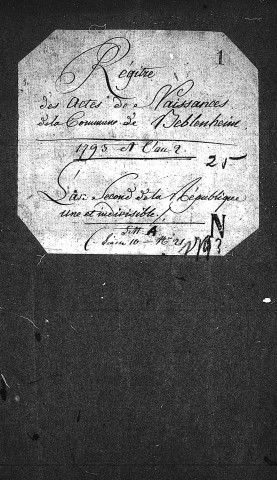 1
Régitre
des actes de Naissances
de la Commune de Beblenheim
1793 et l'an 2.
25
L'an Second de la République
une et indivisible /.
N
Litt. A
1793